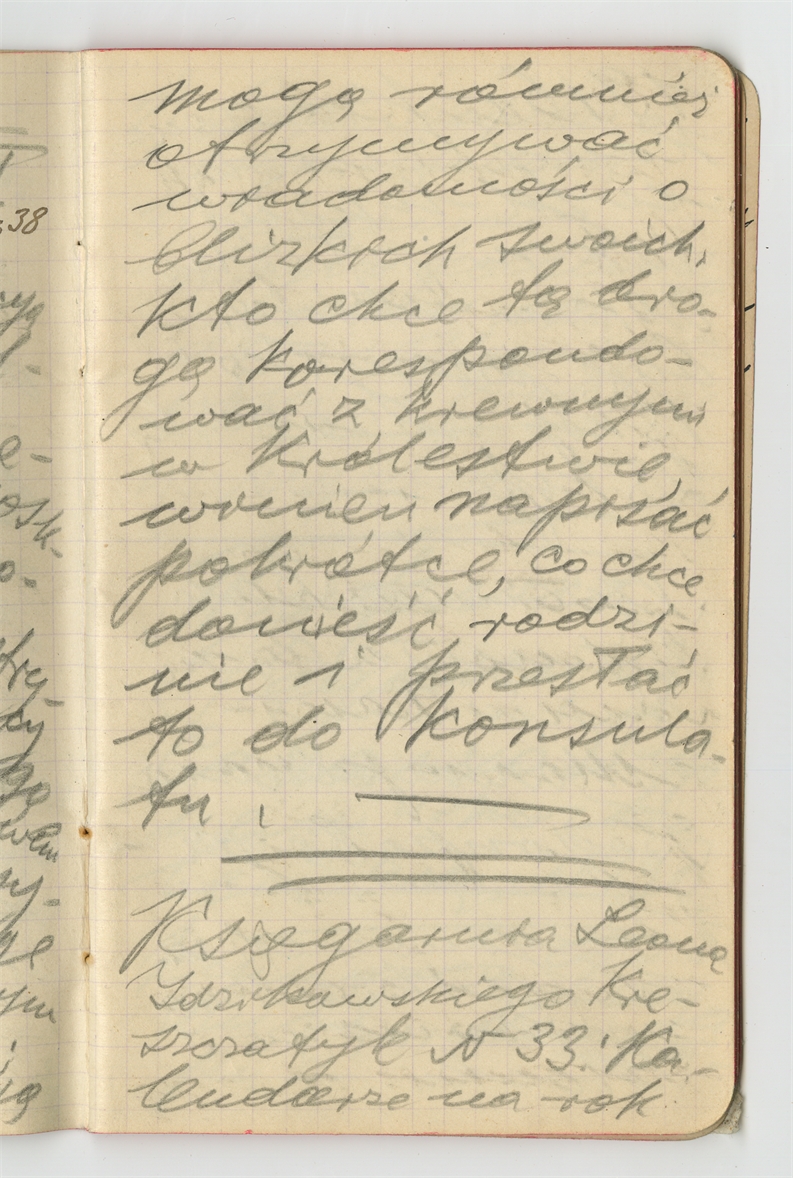 mogą również
otrzymywać
wiadomości o
blizkich swoich,
kto chce tą dro-
gą korespondo-
wać z krewnymi
w Królestwie,
winien napisać
pokrótce, co chce
donieść rodzi-
nie i przesłać
to do Konsula-
tu.
Księgarnia Leona
Idzikowskiego Kre-
szczatyk N 33. Ka-
lendarze na rok
38